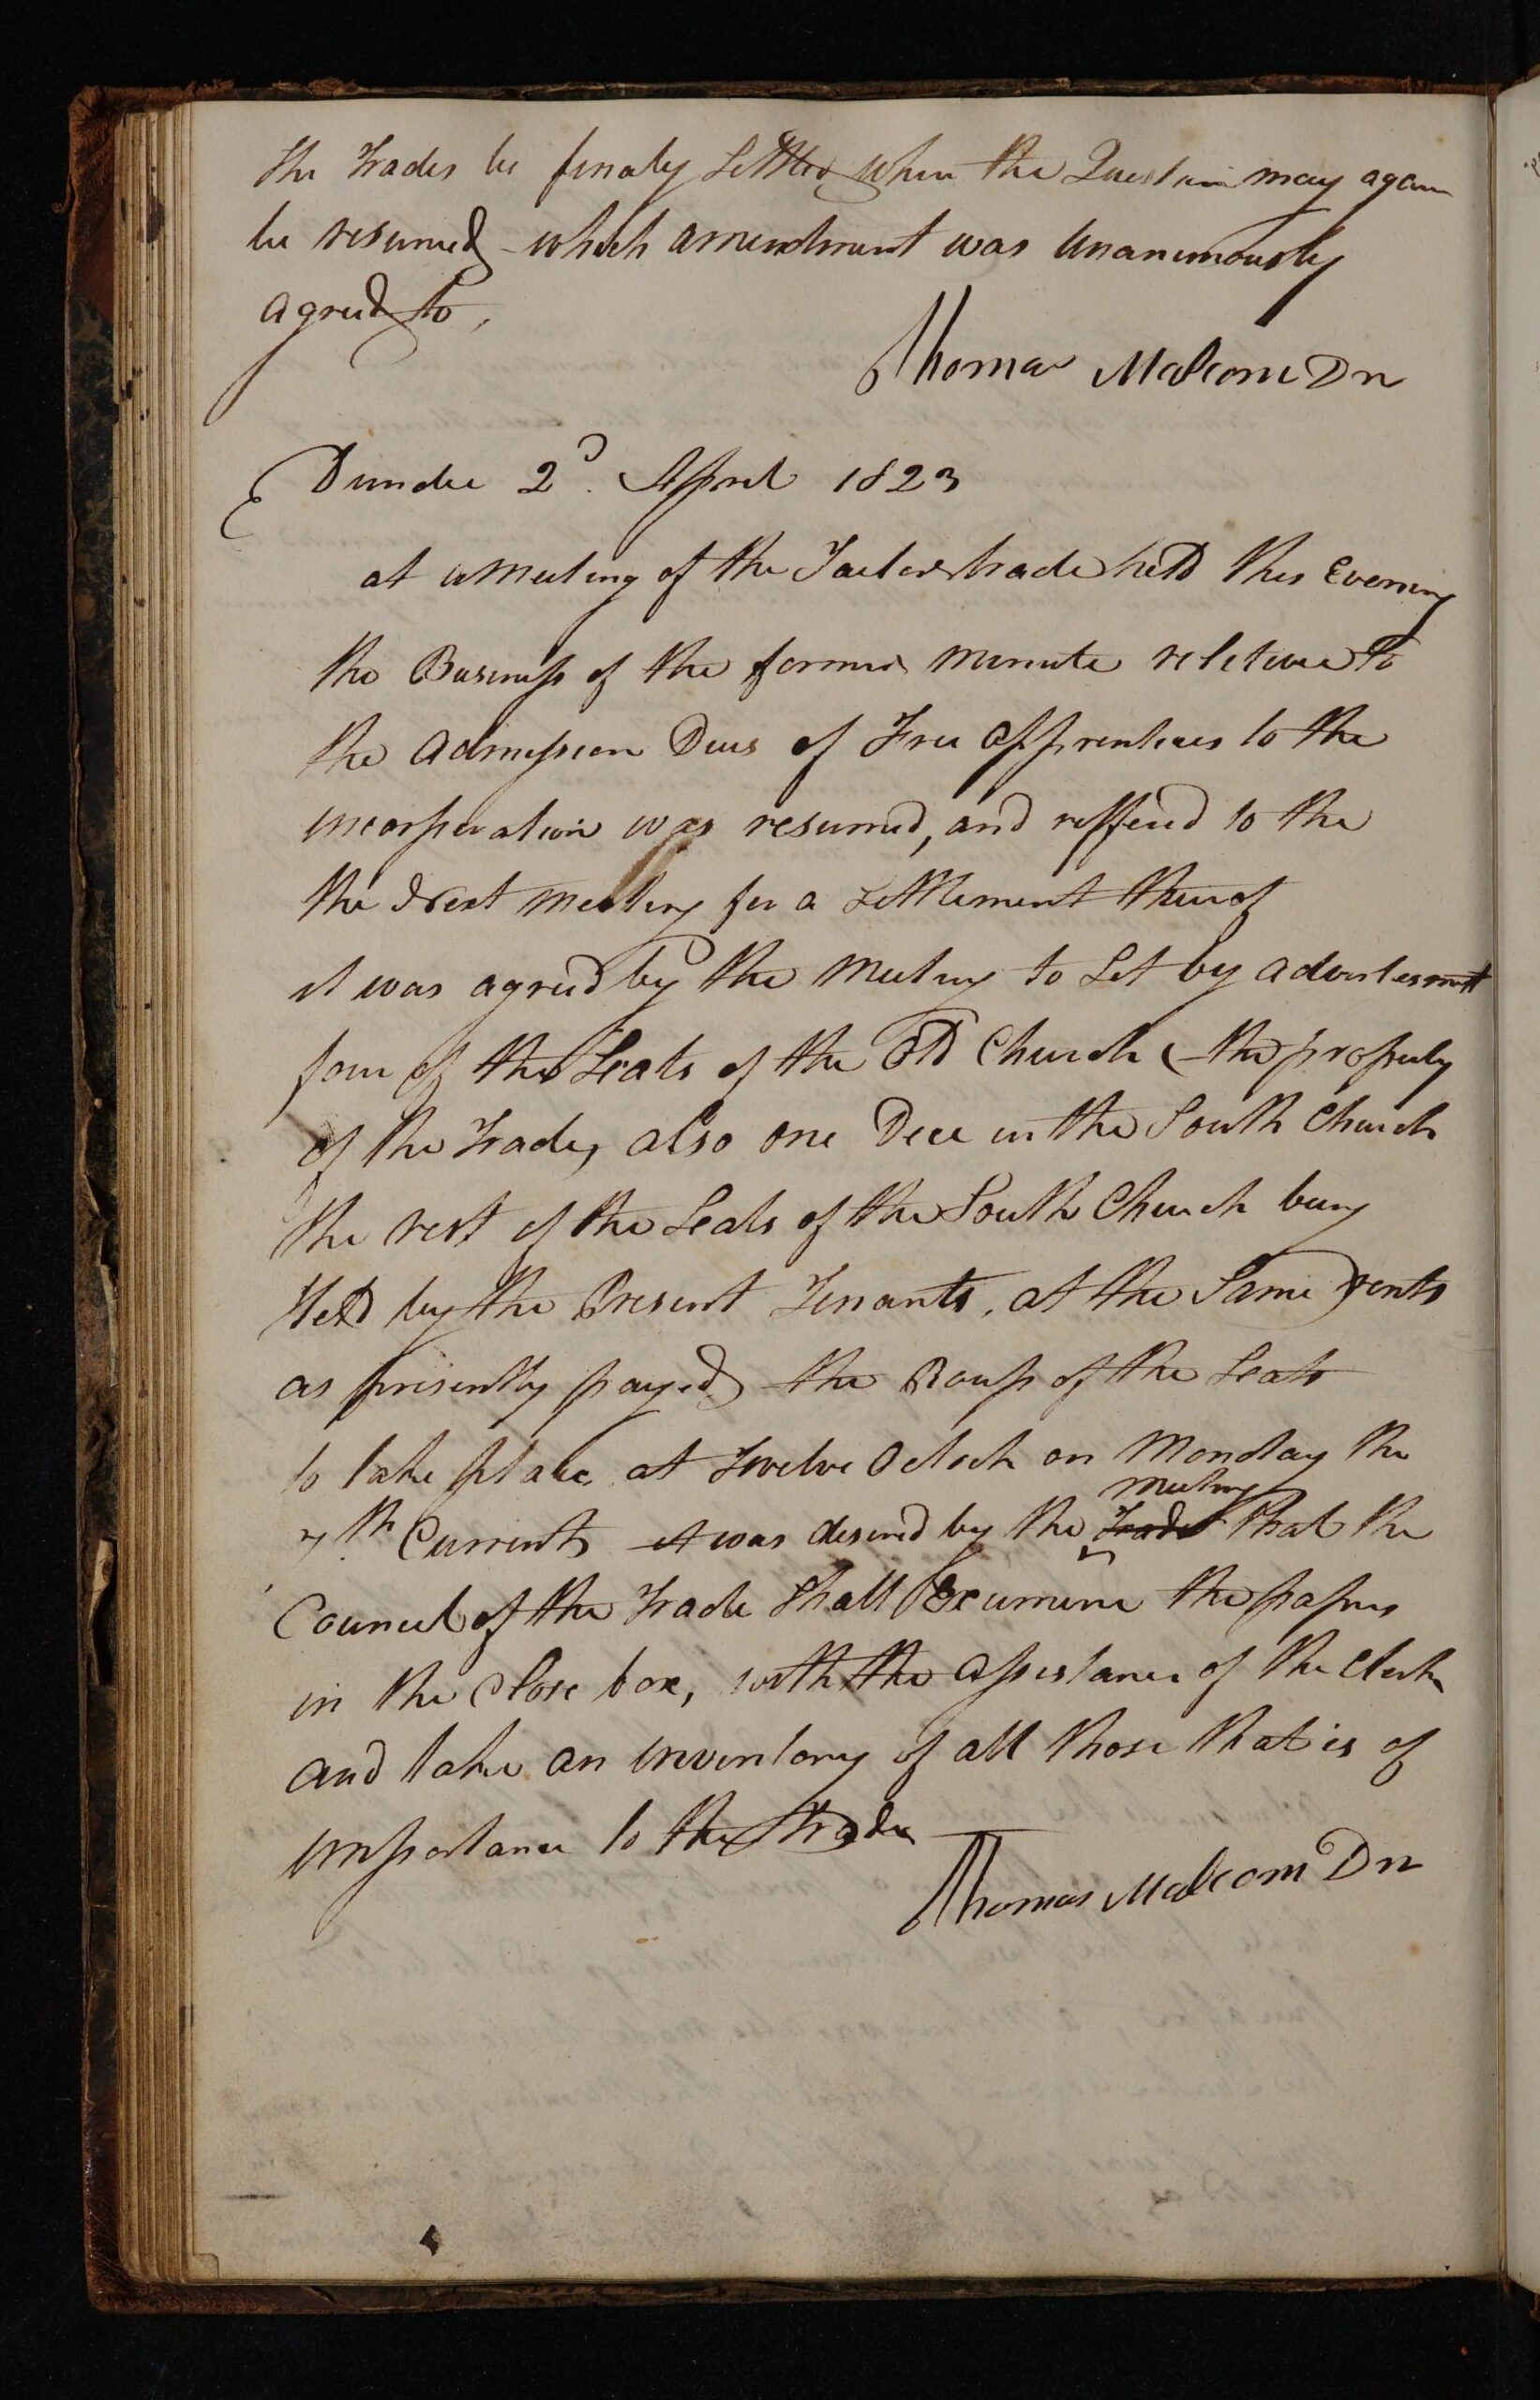 the Trades be finaly Settled when the Question may again
be resumed which amendment was Unanimously
agreed to,
Thomas Malcom Dn
Dundee 2d. April 1823
at a Meeting of the Tailor trade held this Evening
the Business of the former minute reletive to
the Admission Dues of Free Apprentices to the
incorporation was resumed, and reffered to the
the Next meeting for a Settlement thereof
it was agreed by the Meeting to Let by advertesment
four of the Seats of the Old Church the property
of the Trade, also one in the South Church
the rest of the Seats of the South Church being
Held by the Present Tenants, at the Same rents
as presently payed the Roup of the Seats
to take place at Twelve Oclock on Monday the
7th Current it was desired by the Trade meeting that the
Council of the Trade Shall Examine the papers
in the Close box, with the Assistance of the Clerk
and take an inventory of all those that is of
importance to the Trade
Thomas Malcom Dn